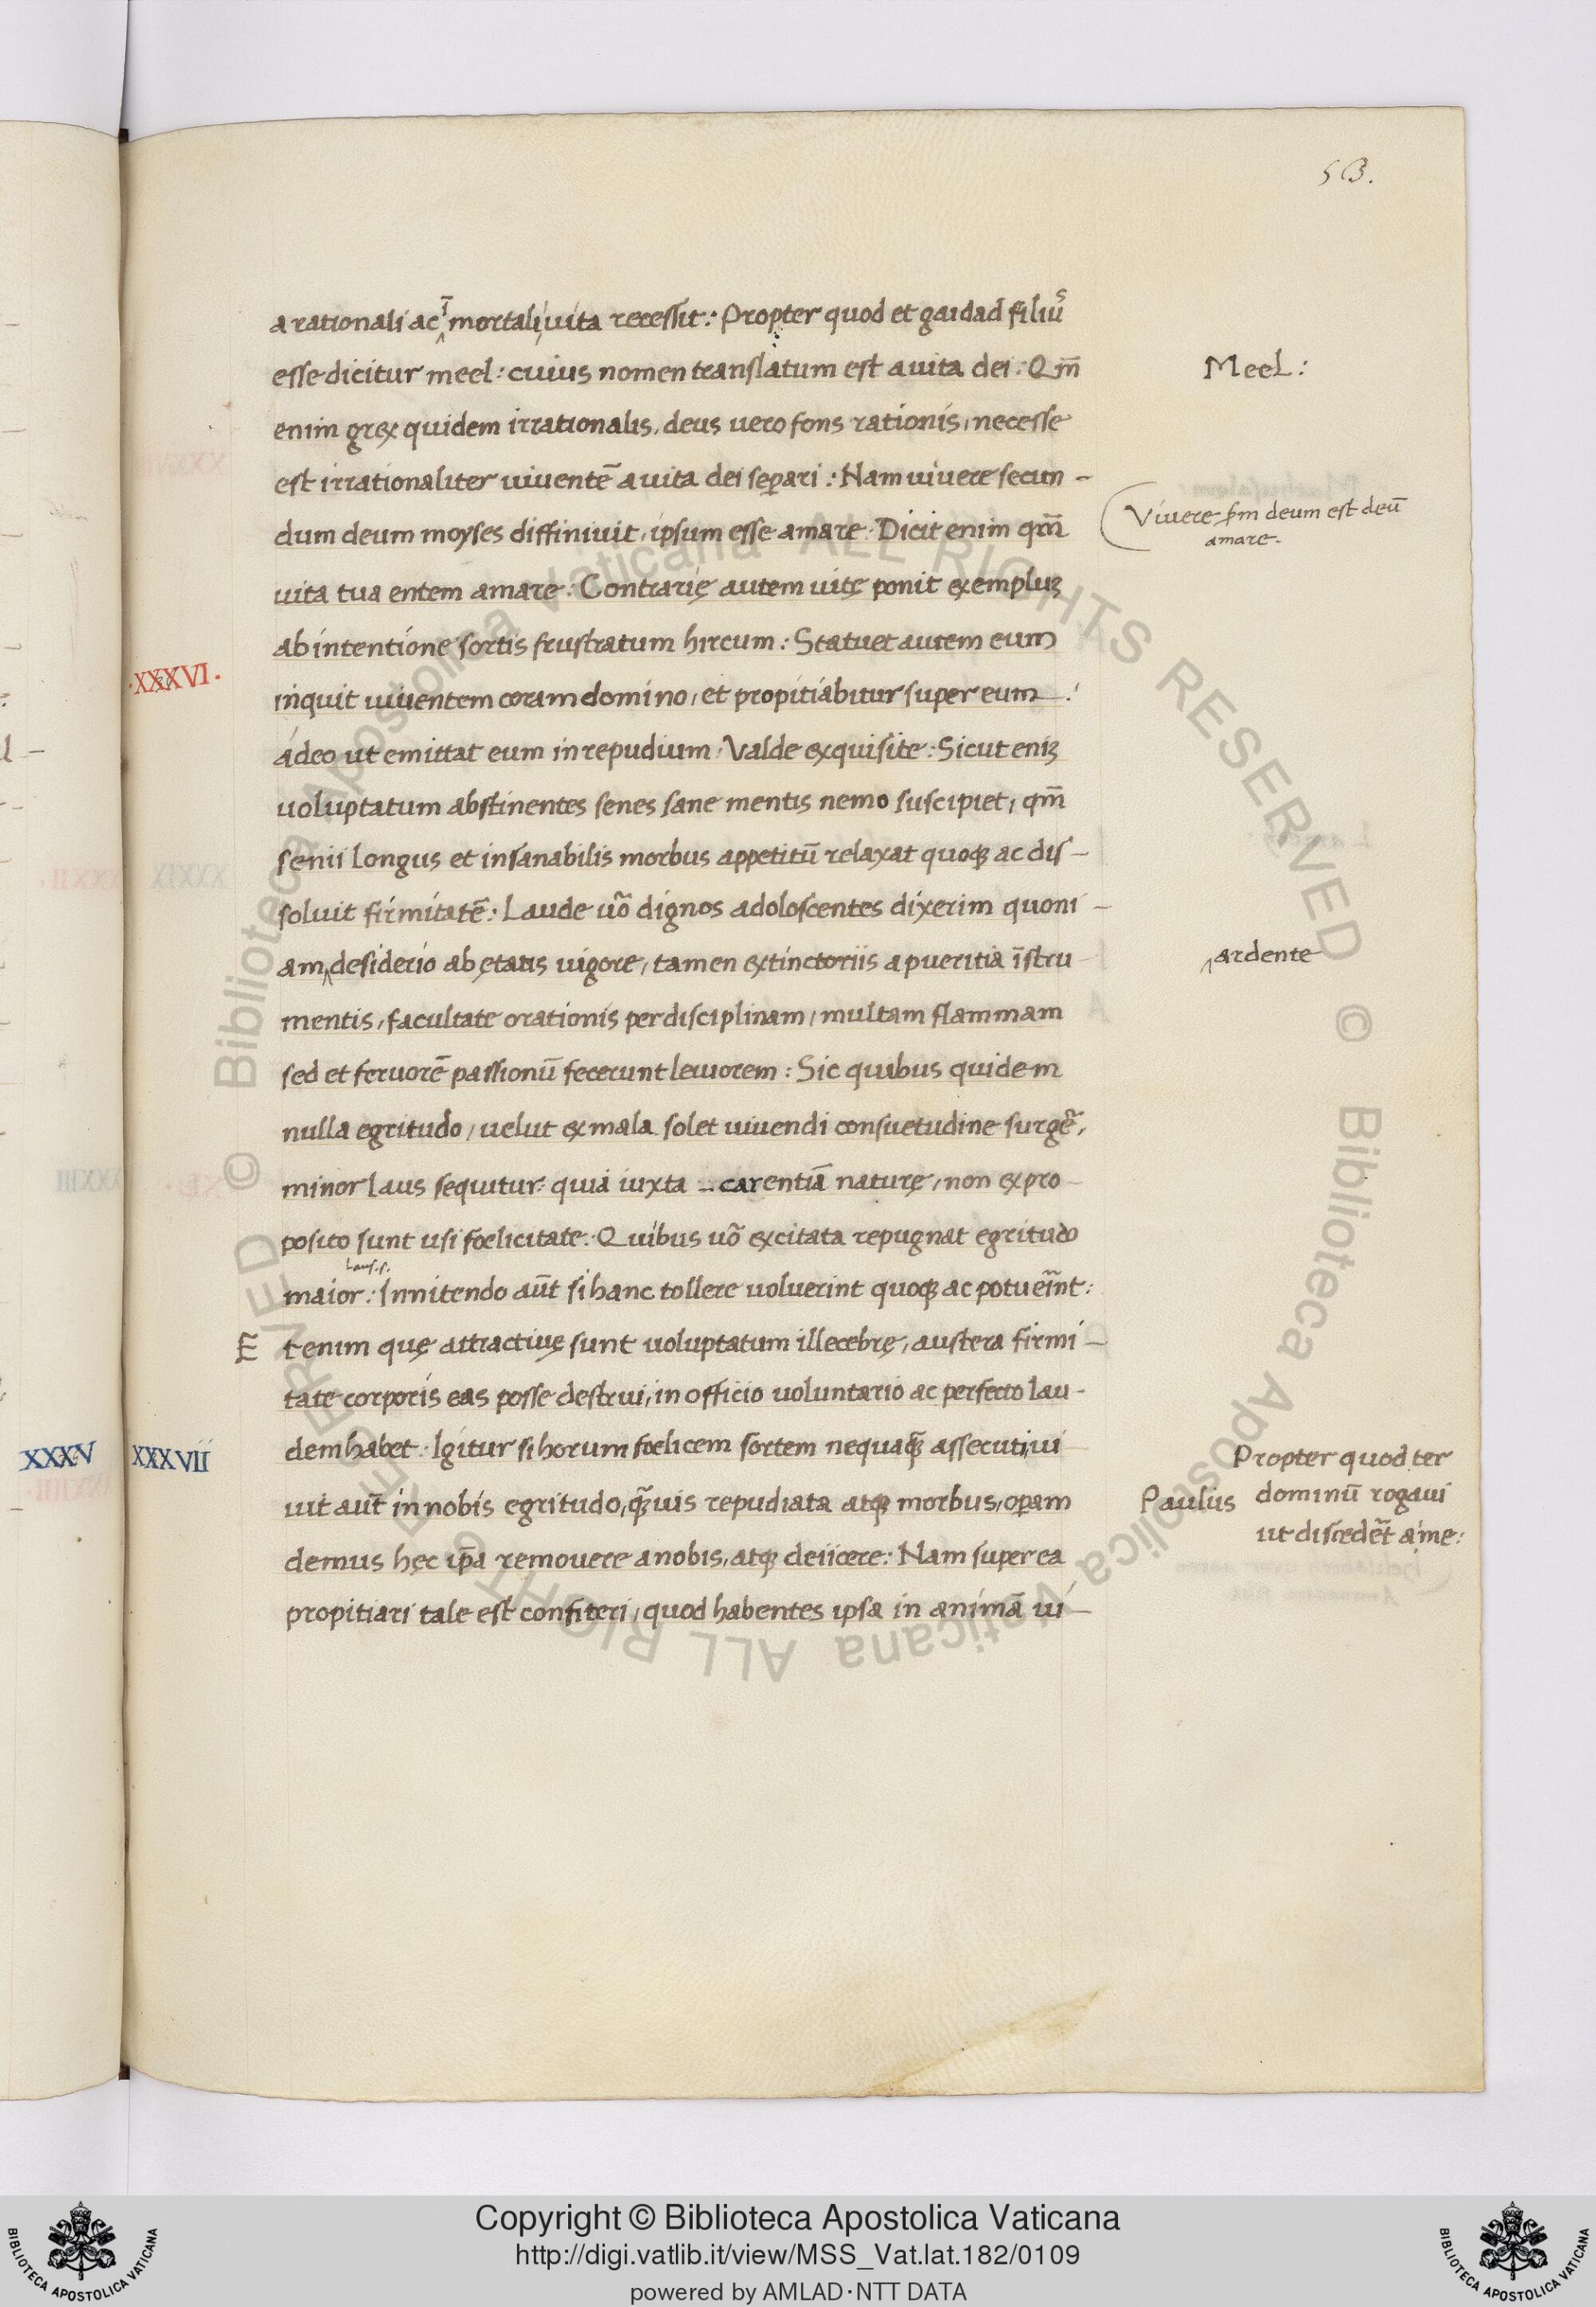 53.
a rationali ac ī mortali, uita recessit: Propter quod et gaidad filiꝰ
esse dicitur meel: cuius nomen translatum est a uita dei: Qm̄
enim grex quidem irrationalis, deus uero fons rationis, necesse
est irrationaliter uiuentē a uita dei seꝑari: Nam uiuere secun-
dum deum moyses diffiniuit, ipsum esse amare: Dicit enim qm̄
uita tua entem amare: Contrarię autem uitę ponit exempluꝫ
ab intentione sortis frustratum hircum: Statuet autem eum
inquit uiuentem coram domino, et propitiabitur super eum:
adeo ut emittat eum in repudium: Valde exquisite: Sicut eniꝫ
uoluptatum abstinentes senes sane mentis nemo suscipiet, qm̄
senii longus et insanabilis morbus appetitū relaxat quoqꝫ ac dis-
soluit firmitatē: Laude uō dignos adoloscentes dixerim quoni-
am desiderio ab ętatis uigore, tamen extinctoriis a pueritia īstru-
mentis, facultate orationis per disciplinam, multam flammam
sed et feruorē passionū fecerunt leuiorem: Sic quibus quidem
nulla egritudo, uelut ex mala solet uiuendi consuetudine surgē,
minor laus sequitur: quia iuxta carentiā naturę, non ex pro-
posito sunt usi foelicitate: Quibus uō excitata repugnat egritudo
laus.s.
maior: Innitendo aūt si hanc tollere uoluerint quoqꝫ ac potuer̄int:
Etenim quę attractiuę sunt uoluptatum illecebrę, austera firmi-
tate corporis eas posse destrui, in officio uoluntario ac perfecto lau-
dem habet: Igitur si horum foelicem sortem nequaq̄ assecuti, ui
uit aūt in nobis egritudo, q̄uis repudiata atqꝫ morbus, oꝑam
demus hęc ip̄a remouere a nobis, atqꝫ deiicere: Nam super ea
propitiari tale est confiteri, quod habentes ipsa in animā ui-
Meel:
Viuere ſm deum est deū
amare.
ardente
Paulus
Propter quod ter
dominū rogaui
ut discedēt a me:
·XXXVI·
XXXV
XXXVII
© Biblioteca Apostolica Vaticana ALL RIGHTS RESERVED © Biblioteca Apostolica Vaticana ALL RIGHTS RESERVED
Copyright © Biblioteca Apostolica Vaticana
http://digi.vatlib.it/view/MSS_Vat.lat.182/0109
powered by AMLAD·NTT DATA
BIBLIOTECA APOSTOLICA VATICANA
BIBLIOTECA APOSTOLICA VATICANA